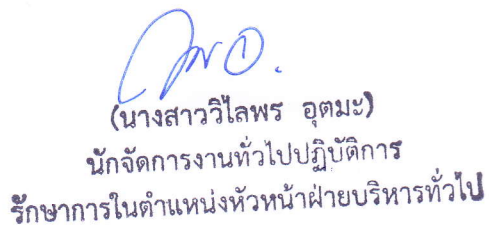 (นางสาววิไลพร อุตมะ)
นักจัดการงานทั่วไปปฏิบัติการ
รักษาการในตำแหน่งหัวหน้าฝ่ายบริหารทั่วไป